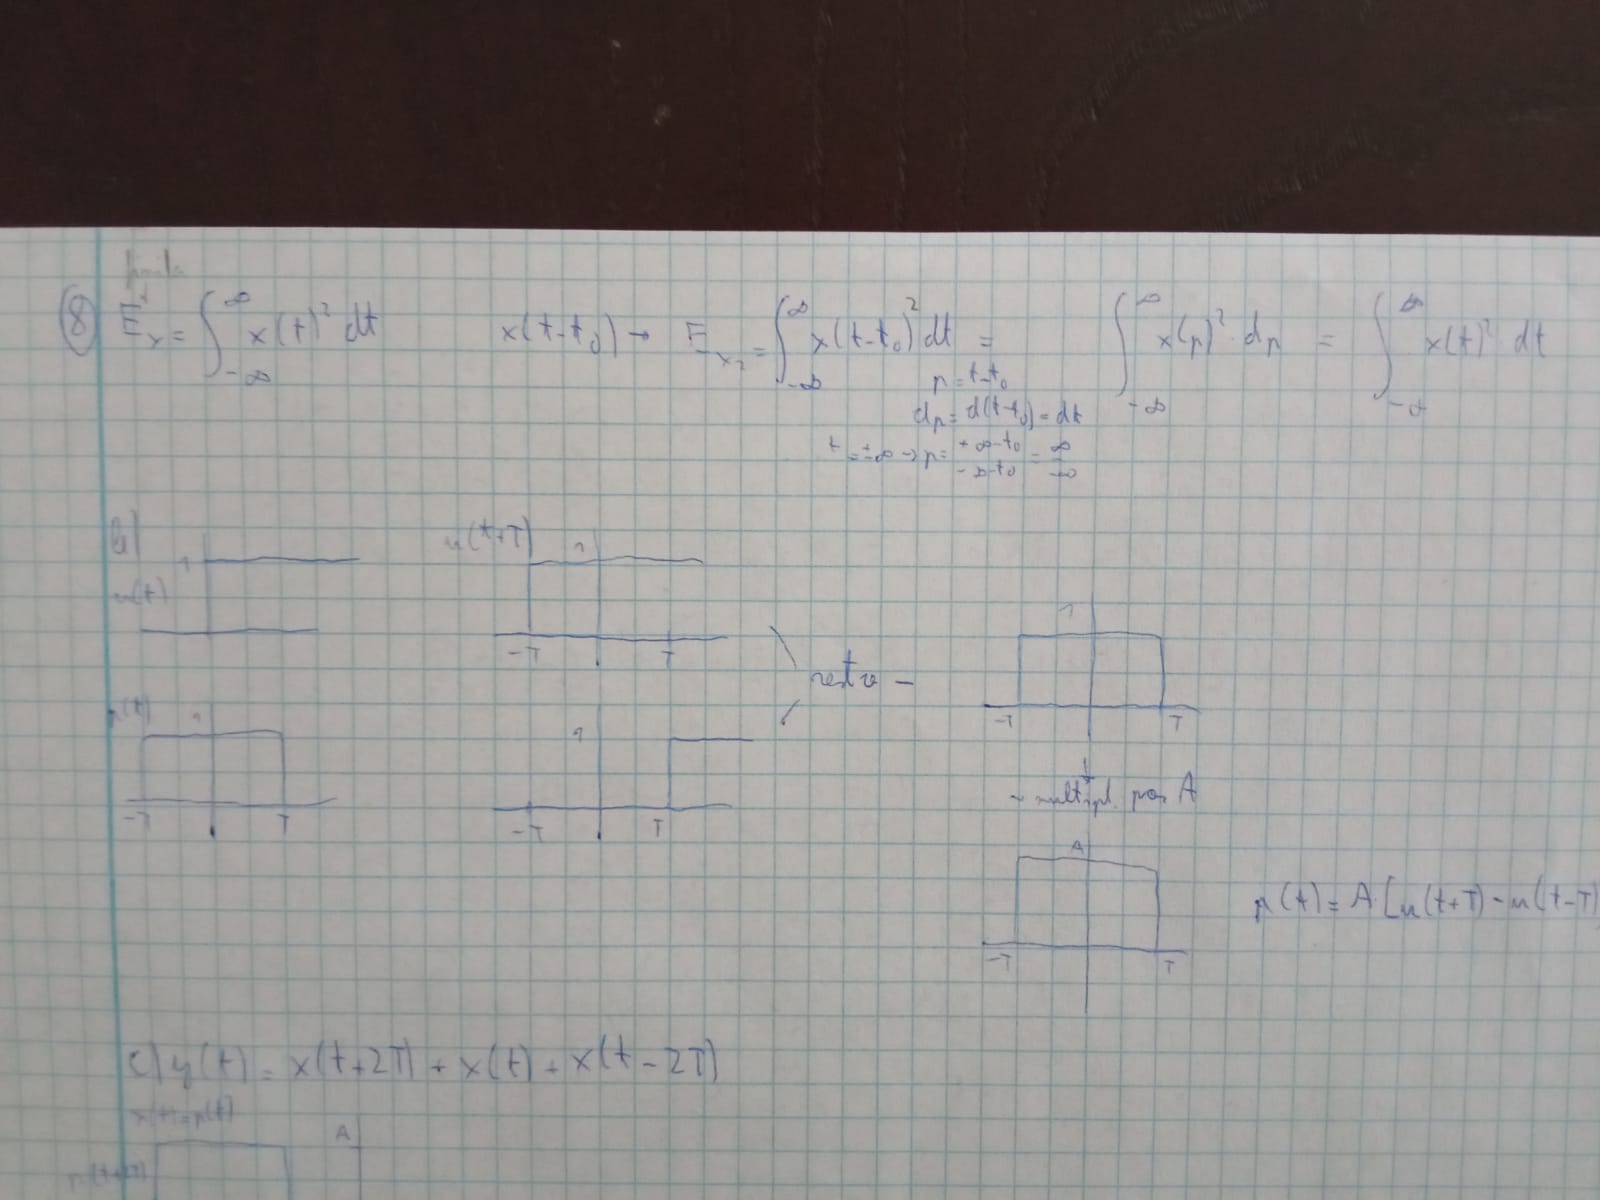 ⑧ E_x = ∫_{-∞}^{∞} x(t)² dt    x(t-t₀) → E_{x₂} = ∫_{-∞}^{∞} x(t-t₀)² dt = ∫_{-∞}^{∞} x(p)² · dp = ∫_{-∞}^{∞} x(t)² dt
p = t-t₀
dp = d(t-t₀) = dt
t = ±∞ → p = +∞-t₀ = ∞
-∞-t₀ -∞
b)
u(t) 1
u(t+T) 1
-T T
p(t) 1
-T T
1
-T T
resta -
1
-T T
multipl. por A
A
-T T
p(t) = A·[u(t+T) - u(t-T)
c) y(t) = x(t+2T) + x(t) + x(t-2T)
x(t)=p(t)
A
p(t+2T)